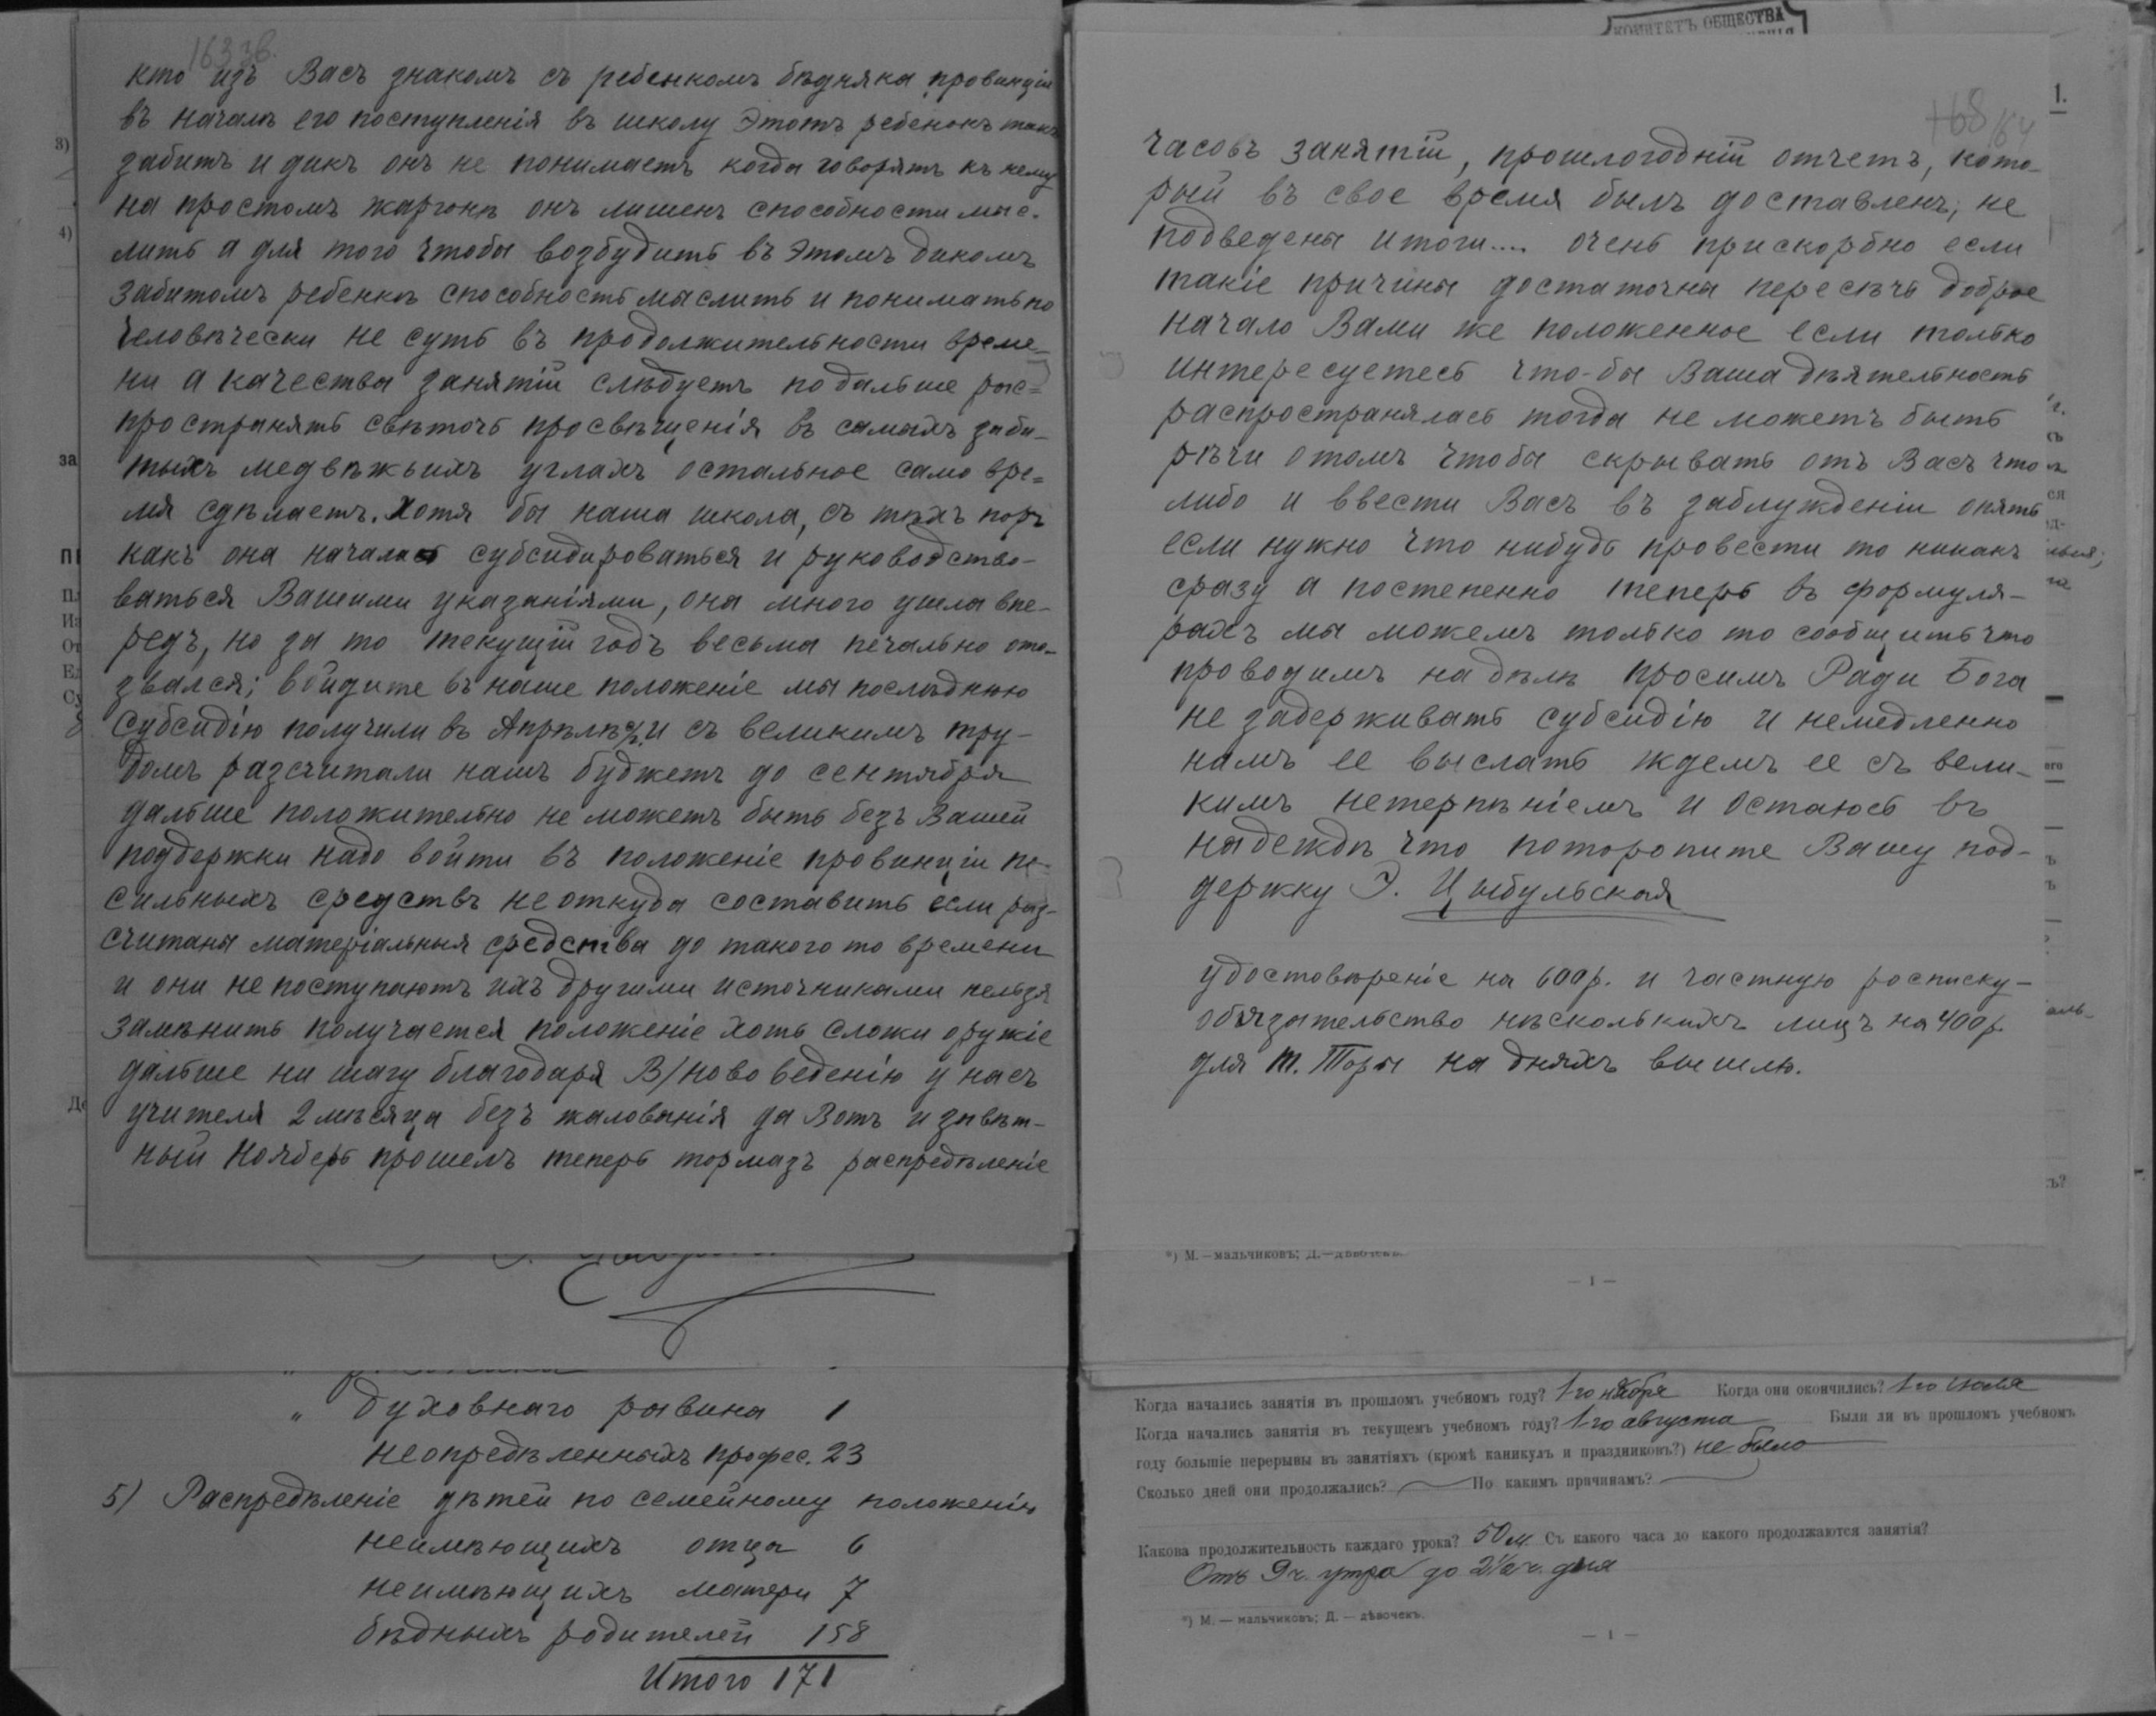 163 зв.
кто изъ Васъ знакомъ съ ребенкомъ бѣдняка провинціи
въ началѣ его поступленія въ школу Этотъ ребенокъ такъ
забитъ и дикъ онъ не понимаетъ когда говорятъ къ нему
на простомъ жаргонѣ онъ лишенъ способности мыс-
лить а для того чтобы возбудить въ этомъ дикомъ
забитомъ ребенкѣ способность мыслить и понимать по
человѣчески не суть въ продолжительности време-
ни а качества занятій слѣдуетъ подальше рас=
пространять свѣточь просвѣщенія въ самыхъ заби-
тыхъ медвѣжьихъ углахъ остальное само вре=
мя сдѣлаетъ. Хотя бы наша школа, съ тѣхъ поръ
какъ она начала субсидироваться и руководство-
ваться Вашими указаніями, она много ушла впе-
редъ, но за то текущій годъ весьма печально ото-
звался; войдите въ наше положеніе мы послѣднюю
субсидію получили въ Апрѣлѣ и съ великимъ тру-
домъ разсчитали нашъ буджетъ до сентября
дальше положительно не можетъ быть безъ Вашей
поддержки надо войти въ положеніе провинціи не-
сильныхъ средствъ неоткуда составить если раз-
считаны матеріальныя средства до такого то времени
и они не поступаютъ ихъ другими источниками нельзя
замѣнить получается положеніе хоть сложи оружіе
дальше ни шагу благодаря В/нововеденію у насъ
учителя 2 мѣсяца безъ жалованія да Вотъ и
ный Нояберь прошелъ теперь тормазъ распредѣленіе
" духовнаго равина 1
неопредѣленныхъ профес. 23
5) Распредѣленіе дѣтей по семейному положенію
неимѣющихъ отца 6
неимѣющихъ матери 7
бѣдныхъ родителей 158
Итого 171
КОМИТЕТЪ ОБЩЕСТВА
1.
168 164
часовъ занятій, прошлогодній отчетъ, кото-
рый въ свое время былъ доставленъ; не
подведены итоги.... очень прискорбно если
такіе причины достаточны пересѣчь доброе
начало Вами же положенное если только
интересуетесь что-бы Ваша дѣятельность
распространялась тогда не можетъ быть
рѣчи отомъ чтобы скрывать отъ Васъ что
либо и ввести Васъ въ заблужденіи опять
если нужно что нибудь провести то никакъ
сразу а постепенно теперь въ формуля-
рахъ мы можемъ только то сообщить что
проводимъ на дѣлѣ просимъ Ради Бога
не задерживать субсидію и немедленно
намъ ее выслать ждемъ ее съ вели-
кимъ нетерпѣніемъ и остаюсь въ
надеждѣ что поторопите Вашу под-
держку Э. Цыбульская
удостовѣреніе на 600р. и частную росписку-
обязательство нѣсколькихъ лицъ на 400р.
для Т. Торы на дняхъ вышлю.
*) М. — мальчиковъ; Д. — дѣвочекъ.
— 1 —
Когда начались занятія въ прошломъ учебномъ году? 1-го ноября Когда они окончились? 1-го іюля
Когда начались занятія въ текущемъ учебномъ году? 1-го августа Были ли въ прошломъ учебномъ
году большіе перерывы въ занятіяхъ (кромѣ каникулъ и праздниковъ?) не было
Сколько дней они продолжались? — По какимъ причинамъ? —
Какова продолжительность каждаго урока? 50 м. Съ какого часа до какого продолжаются занятія?
Отъ 9 ч. утра до 2½ ч. дня
*) М. — мальчиковъ; Д. — дѣвочекъ.
— 1 —